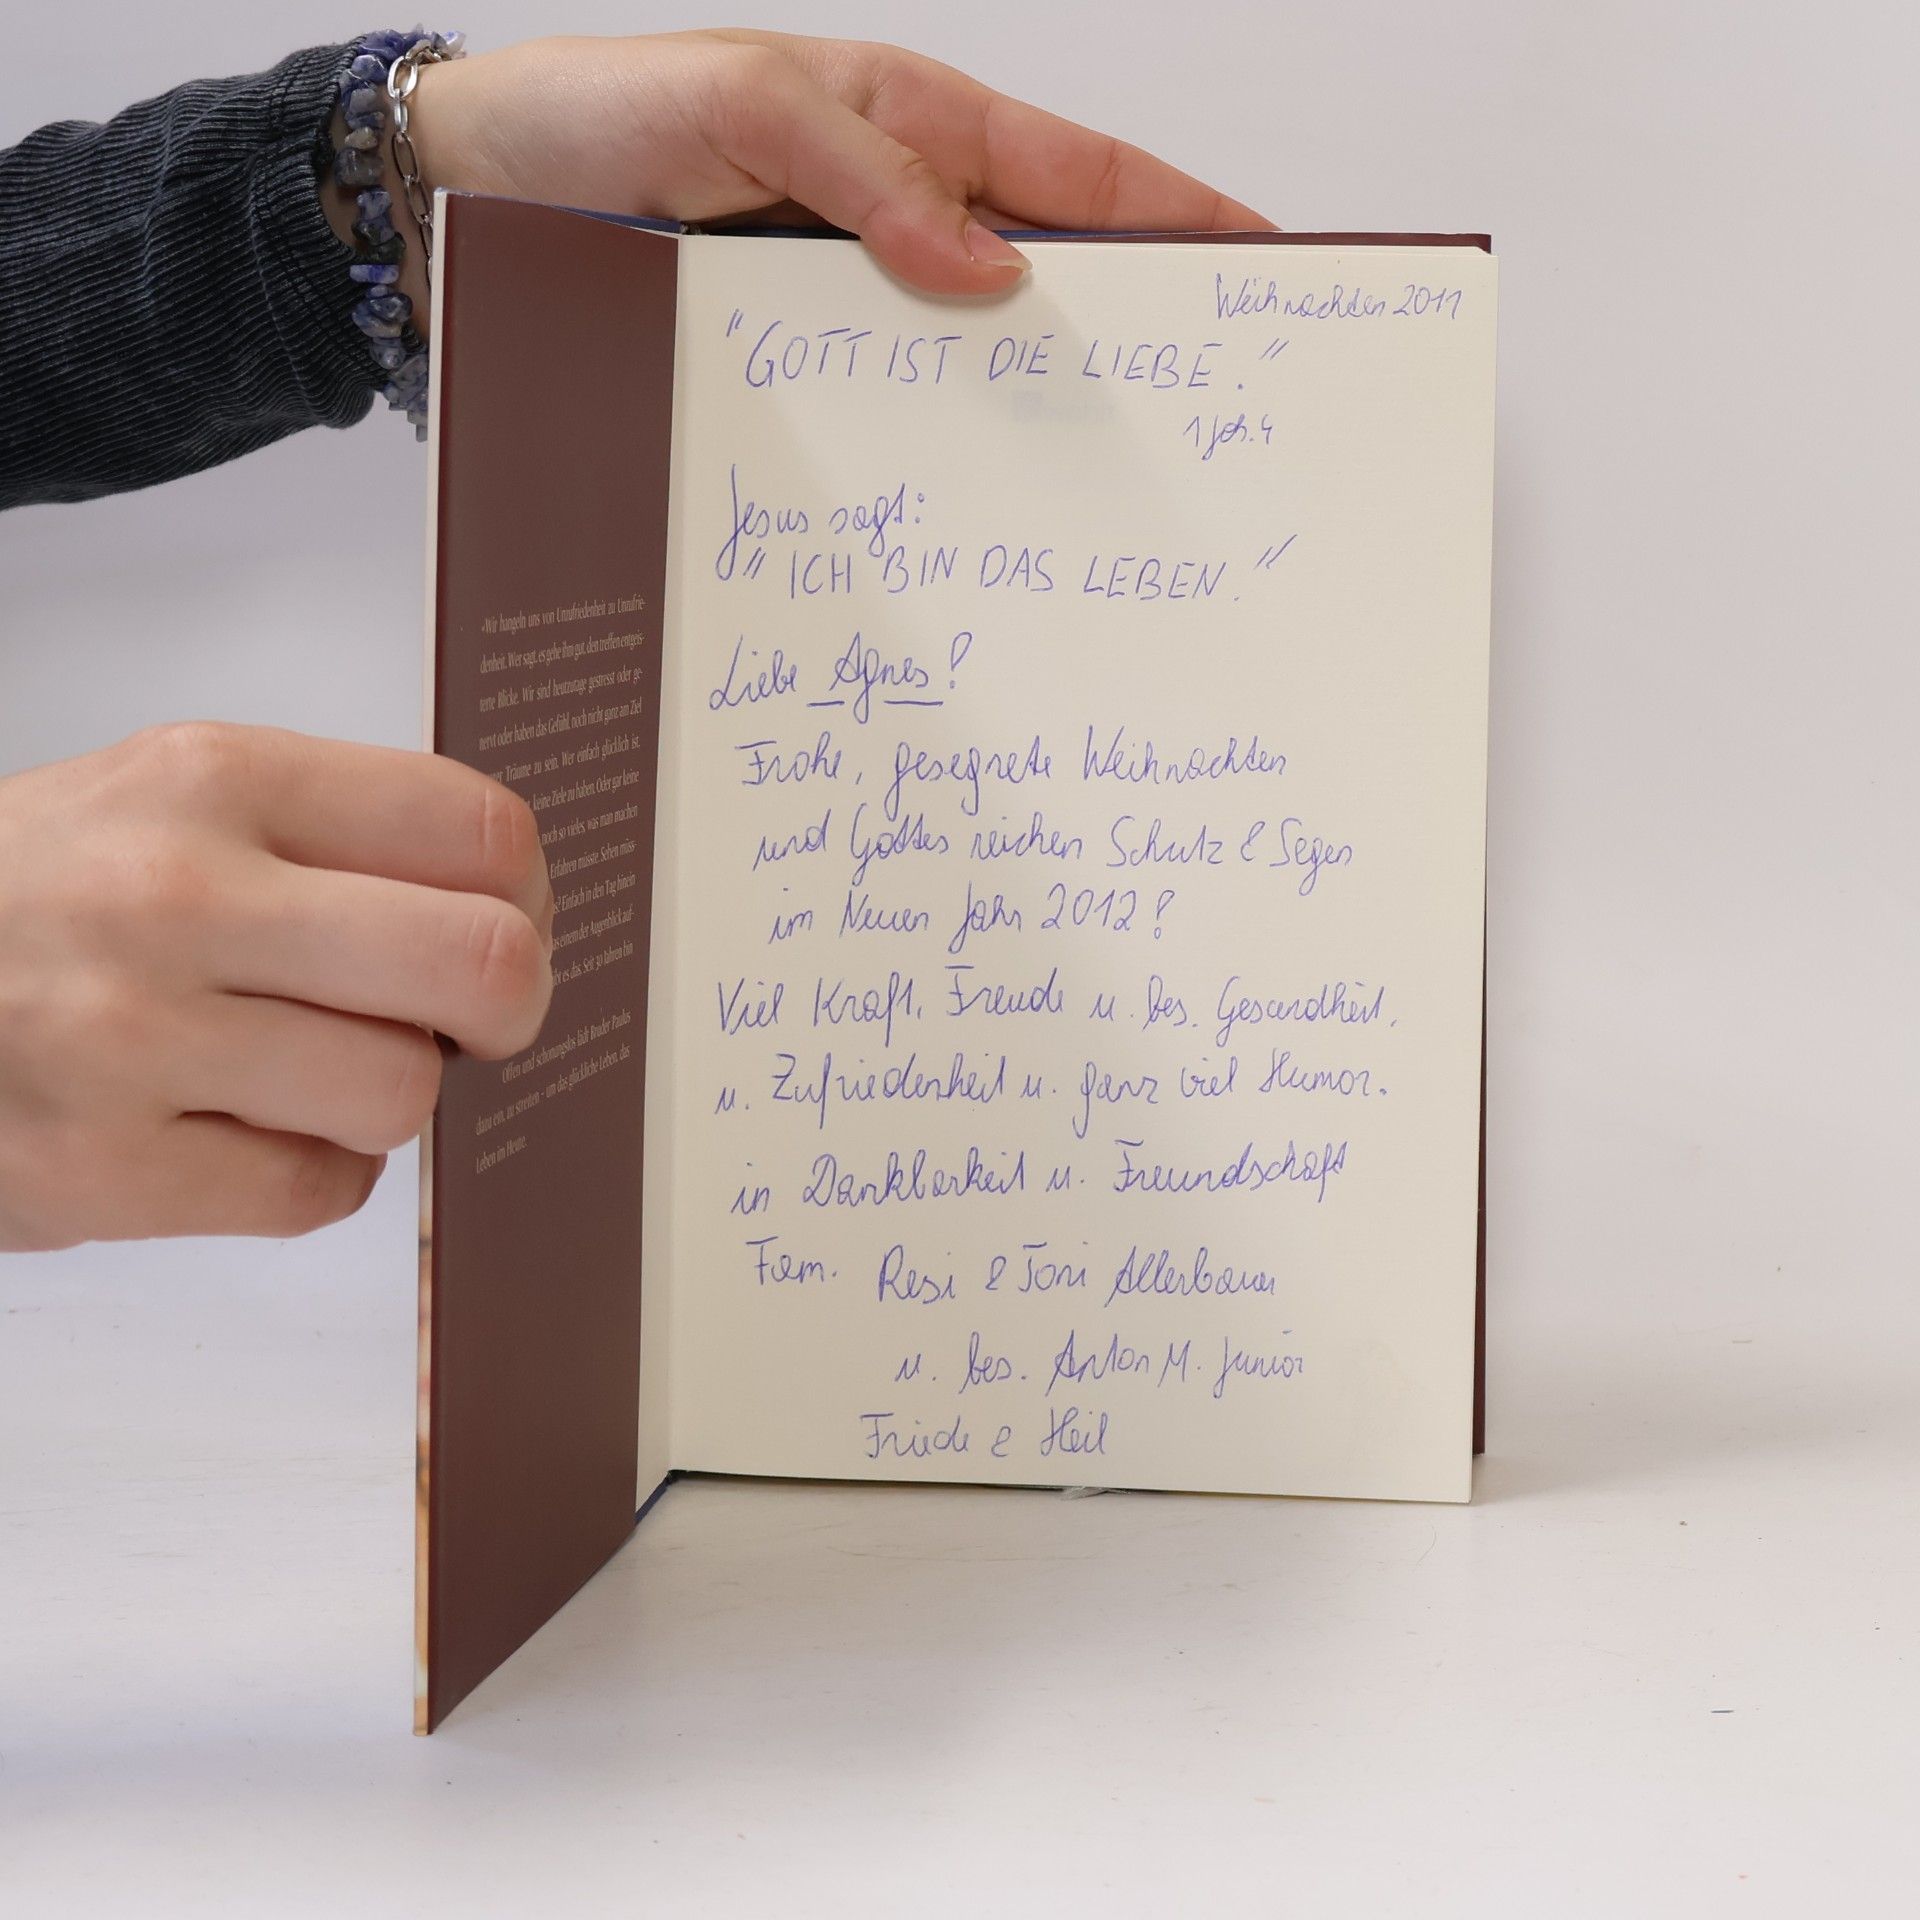 «Wir hangeln uns von Unzufriedenheit zu Unzufrie-
denheit. Wer sagt, es gehe ihm gut, den treffen entgeis-
terte Blicke. Wir sind heutzutage gestresst oder ge-
nervt oder haben das Gefühl, noch nicht ganz am Ziel
Träume zu sein. Wer einfach glücklich ist,
keine Ziele zu haben. Oder gar keine
noch so vieles, was man machen
Erfahren müsste. Sehen müss-
Einfach in den Tag hinein
einem der Augenblick auf-
es das. Seit 30 Jahren bin
Offen und schonungslos lädt Bruder Paulus
dazu ein, zu streiten – um das glückliche Leben, das
Leben im Heute.
Weihnachten 2011
"GOTT IST DIE LIEBE."
1 Joh. 4
Jesus sagt:
"ICH BIN DAS LEBEN."
Liebe Agnes!
Frohe, gesegnete Weihnachten
und Gottes reichen Schutz & Segen
im Neuen Jahr 2012!
Viel Kraft, Freude u. bes. Gesundheit,
u. Zufriedenheit u. ganz viel Humor.
in Dankbarkeit u. Freundschaft
Fam. Resi & Toni Allerbauer
u. bes. Anton M. Junior
Friede & Heil